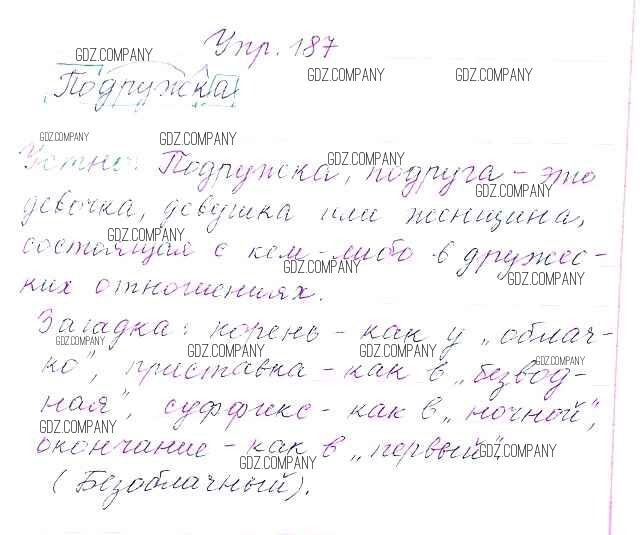 Упр. 187
GDZ.COMPANY
GDZ.COMPANY GDZ.COMPANY
Подружка
GDZ.COMPANY GDZ.COMPANY
Устно: Подружка, подруга - это
GDZ.COMPANY
GDZ.COMPANY
девочка, девушка или женщина,
GDZ.COMPANY
состоящая с кем-либо в дружес-
GDZ.COMPANY
GDZ.COMPANY
ких отношениях.
Загадка: корень - как у "облач-
GDZ.COMPANY GDZ.COMPANY GDZ.COMPANY
ко", приставка - как в "безвод-
GDZ.COMPANY
ная", суффикс - как в "ночной",
GDZ.COMPANY
окончание - как в "первый".
GDZ.COMPANY GDZ.COMPANY
(Безоблачный).